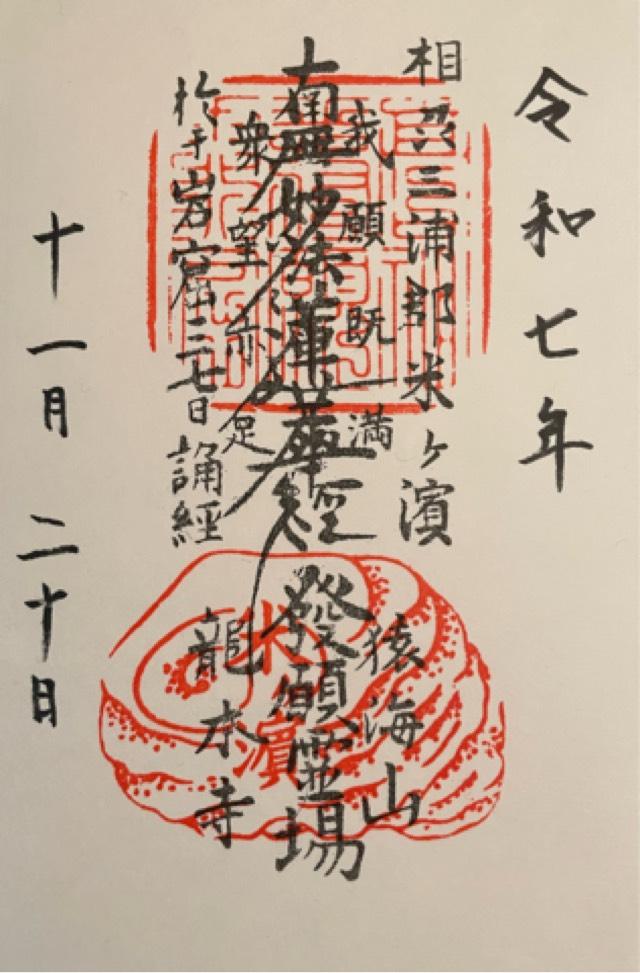 令和七年
相州三浦郡米ヶ濱
我願既満
南無妙法蓮華経
衆望亦足
於于岩窟三七日誦經
猿海山
發願霊場
龍本寺
米濱
十一月二十日